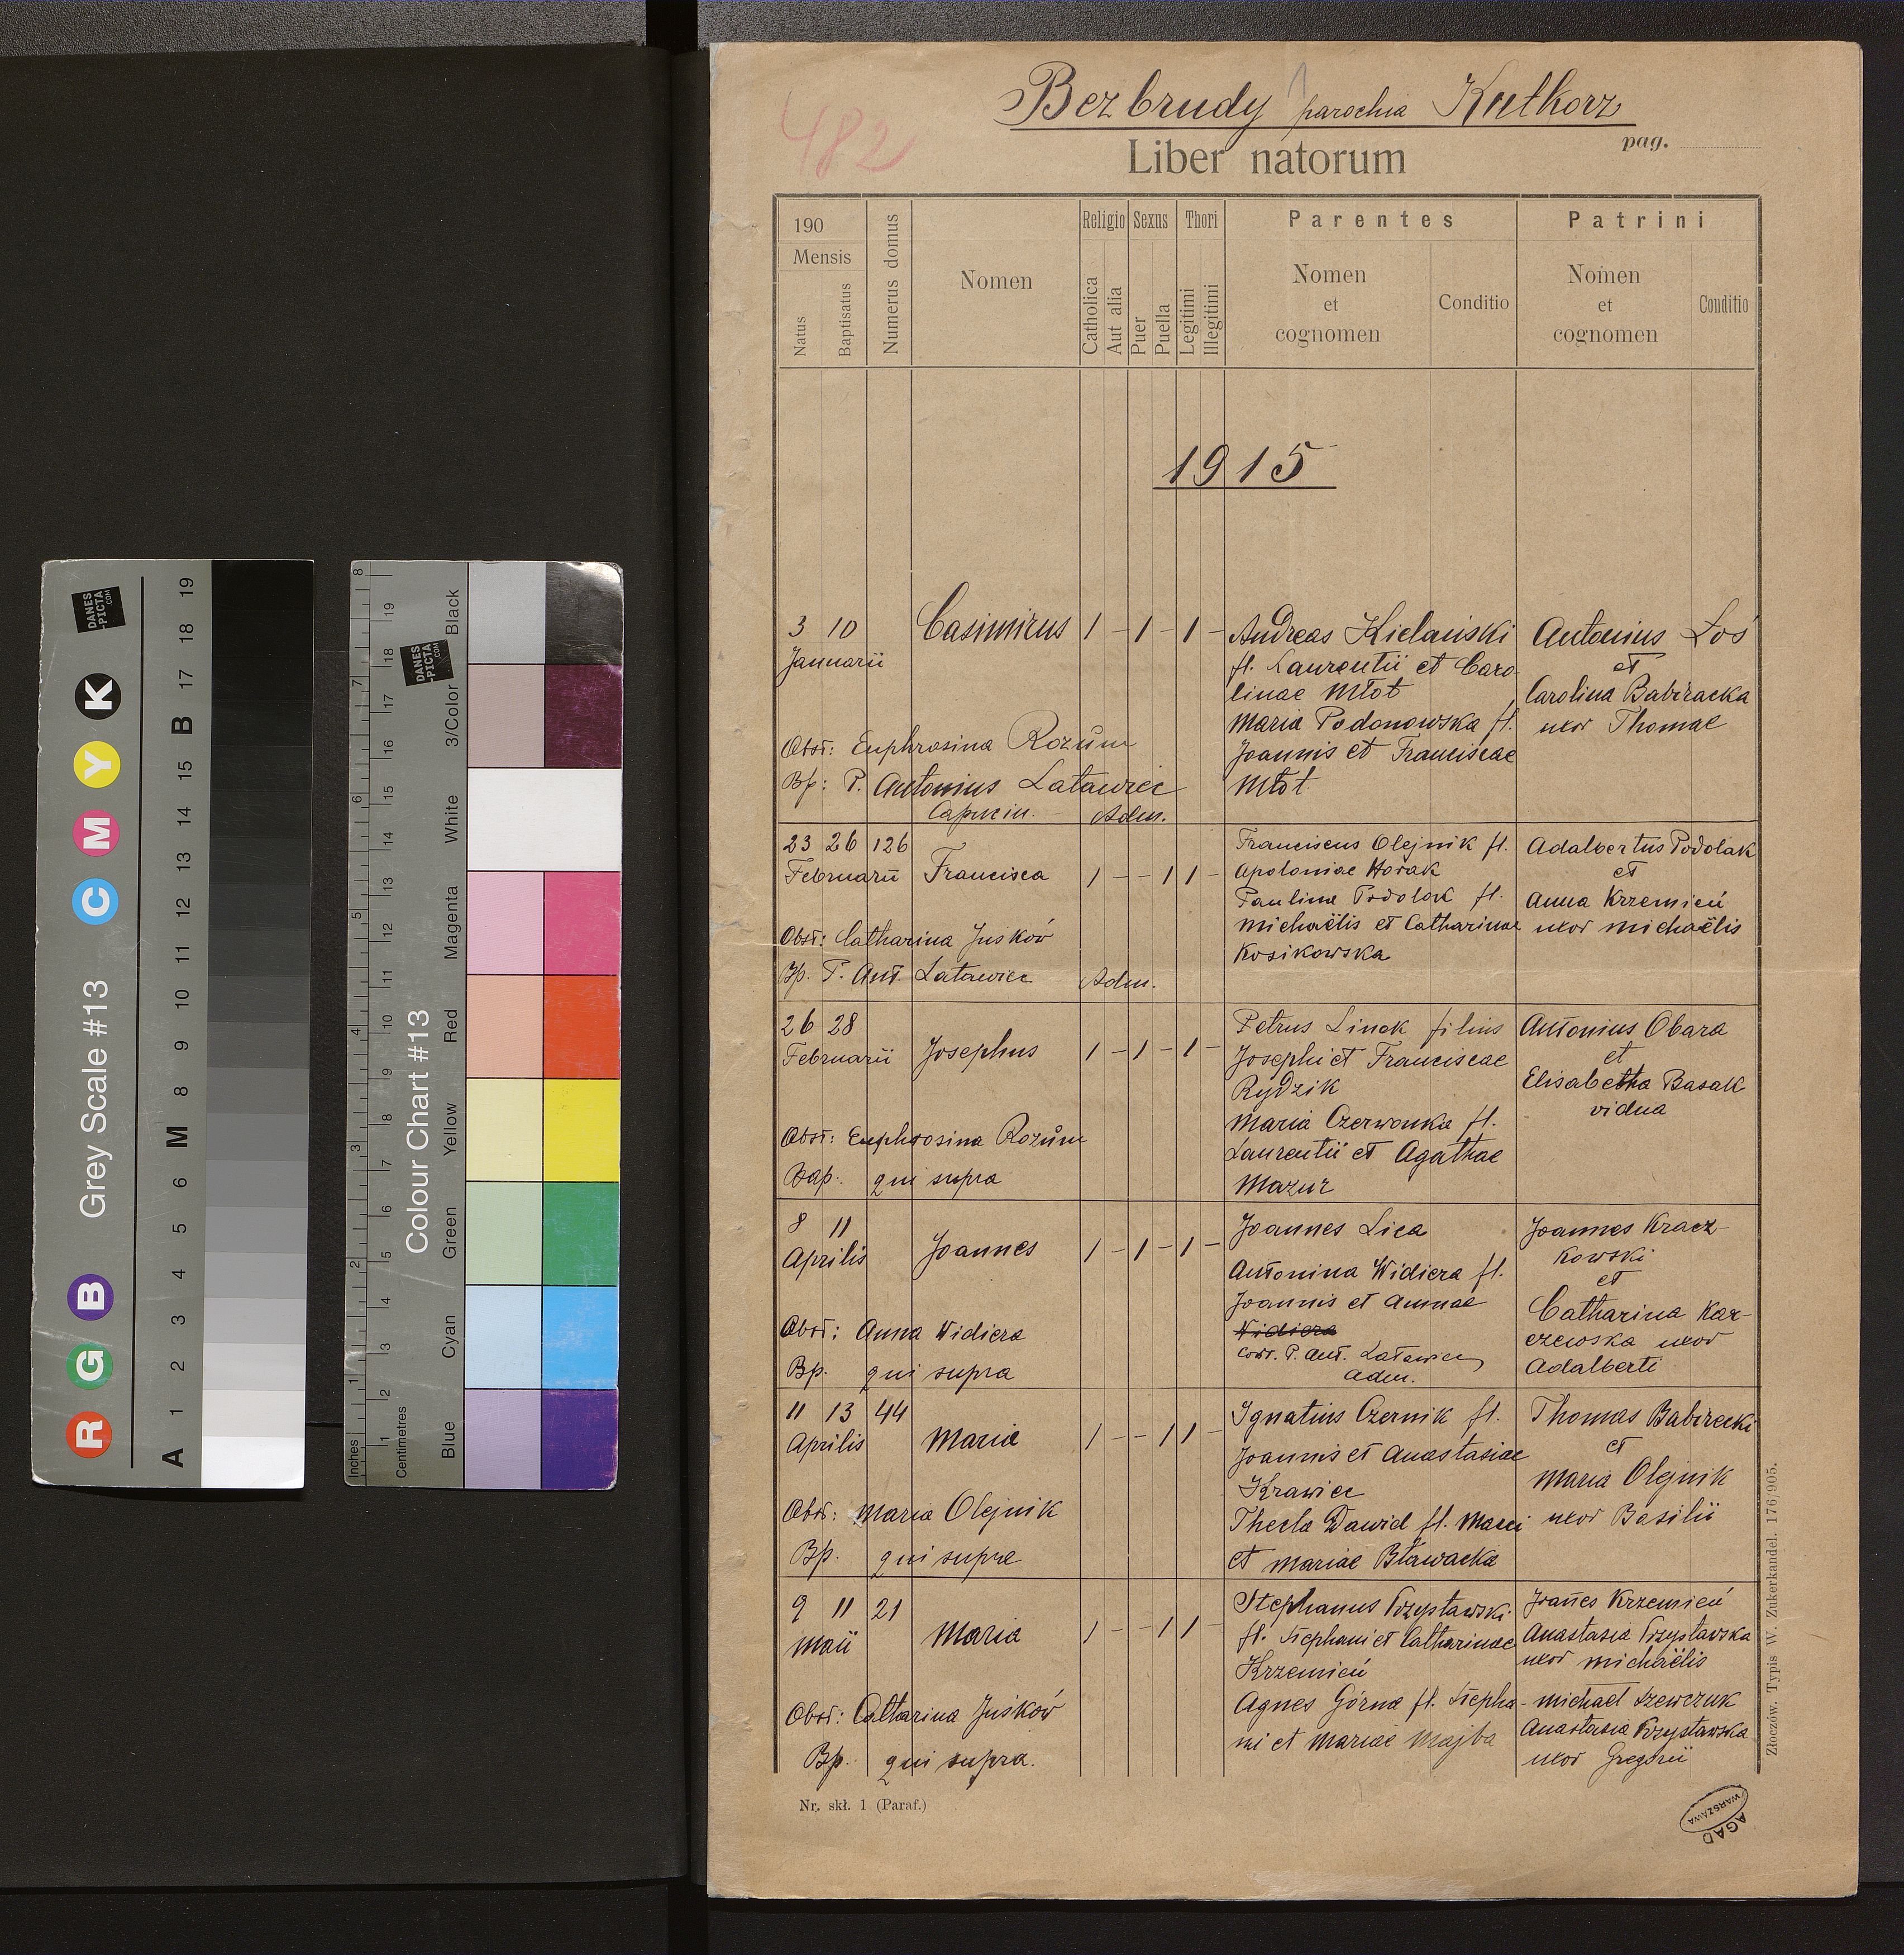 482
Bezbrudy parochia Kutkorz
pag.
Liber natorum
190
Mensis
Natus
Baptisatus
Numerus domus
Nomen
Religio
Catholica
Aut alia
Sexus
Puer
Puella
Thori
Legitimi
Illegitimi
Parentes
Nomen
et
cognomen
Conditio
Patrini
Nomen
et
cognomen
Conditio
1915
3 10
Januarii
Casimirus
1 - 1 - 1 -
Obst: Euphrosina Rozum
Bp: P. Antonius Latawiec
Capucin. Adm.
Andreas Kielański
fl. Laurentii et Caro
linae Młot
Maria Podonowska fl.
Joannis et Franciscae
Młot
Antonius Łoś
et
Carolina Babiracka
uxor Thomae
23 26 126
Februarii
Francisca
1 - - 1 1 -
Obst: Catharina Juśków
Bp. P. Ant. Latawiec Adm.
Franciscus Olejnik fl.
Apoloniae Horak
Paulina Podolak fl.
Michaëlis et Catharinae
Kosikowska
Adalbertus Podolak
et
Anna Krzemień
uxor Michaëlis
26 28
Februarii
Josephus
1 - 1 - 1 -
Obst: Euphrosina Rozum
Bap. qui supra
Petrus Linek filius
Josephi et Franciscae
Rydzik
Maria Czerwonka fl.
Laurentii et Agathae
Mazur
Antonius Obara
et
Elisabetha Basak
vidua
8 11
Aprilis
Joannes
1 - 1 - 1 -
Obst: Anna Widiera
Bp. qui supra
Joannes Lica
Antonina Widiera fl.
Joannis et Annae
Widiera
corr. P. Ant. Latawiec
Adm.
Joannes Kracz-
kowski
et
Catharina Kar-
czewska uxor
Adalberti
11 13 44
Aprilis
Maria
1 - - 1 1 -
Obst: Maria Olejnik
Bp. qui supra
Ignatius Czernik fl.
Joannis et Anastasiae
Krawiec
Thecla Dawid fl. Marci
et Mariae Bławacka
Thomas Babirecki
et
Maria Olejnik
uxor Basilii
9 11 21
Maii
Maria
1 - - 1 1 -
Obst: Catharina Juśków
Bp. qui supra.
Stephanus Przystawski
fl. Stephani et Catharinae
Krzemień
Agnes Górna fl. Stepha-
ni et Mariae Majba
Joañes Krzemień
Anastasia Przystawska
uxor Michaëlis
Michael Szewczuk
Anastasia Przystawska
uxor Gregorii
Nr. skł. 1 (Paraf.)
Złoczów. Typis W. Zukerkandel. 176/905.
AGAD
WARSZAWA
Grey Scale #13
R G B C M Y K
DANES
-PICTA
.COM
A 1 2 3 4 5 6 M 8 9 10 11 12 13 14 15 B 17 18 19
Colour Chart #13
DANES
-PICTA
.COM
Inches 1 2 3 4 5 6 7 8
Centimetres 1 2 3 4 5 6 7 8 9 10 11 12 13 14 15 16 17 18 19
Blue
Cyan
Green
Yellow
Red
Magenta
White
3/Color
Black